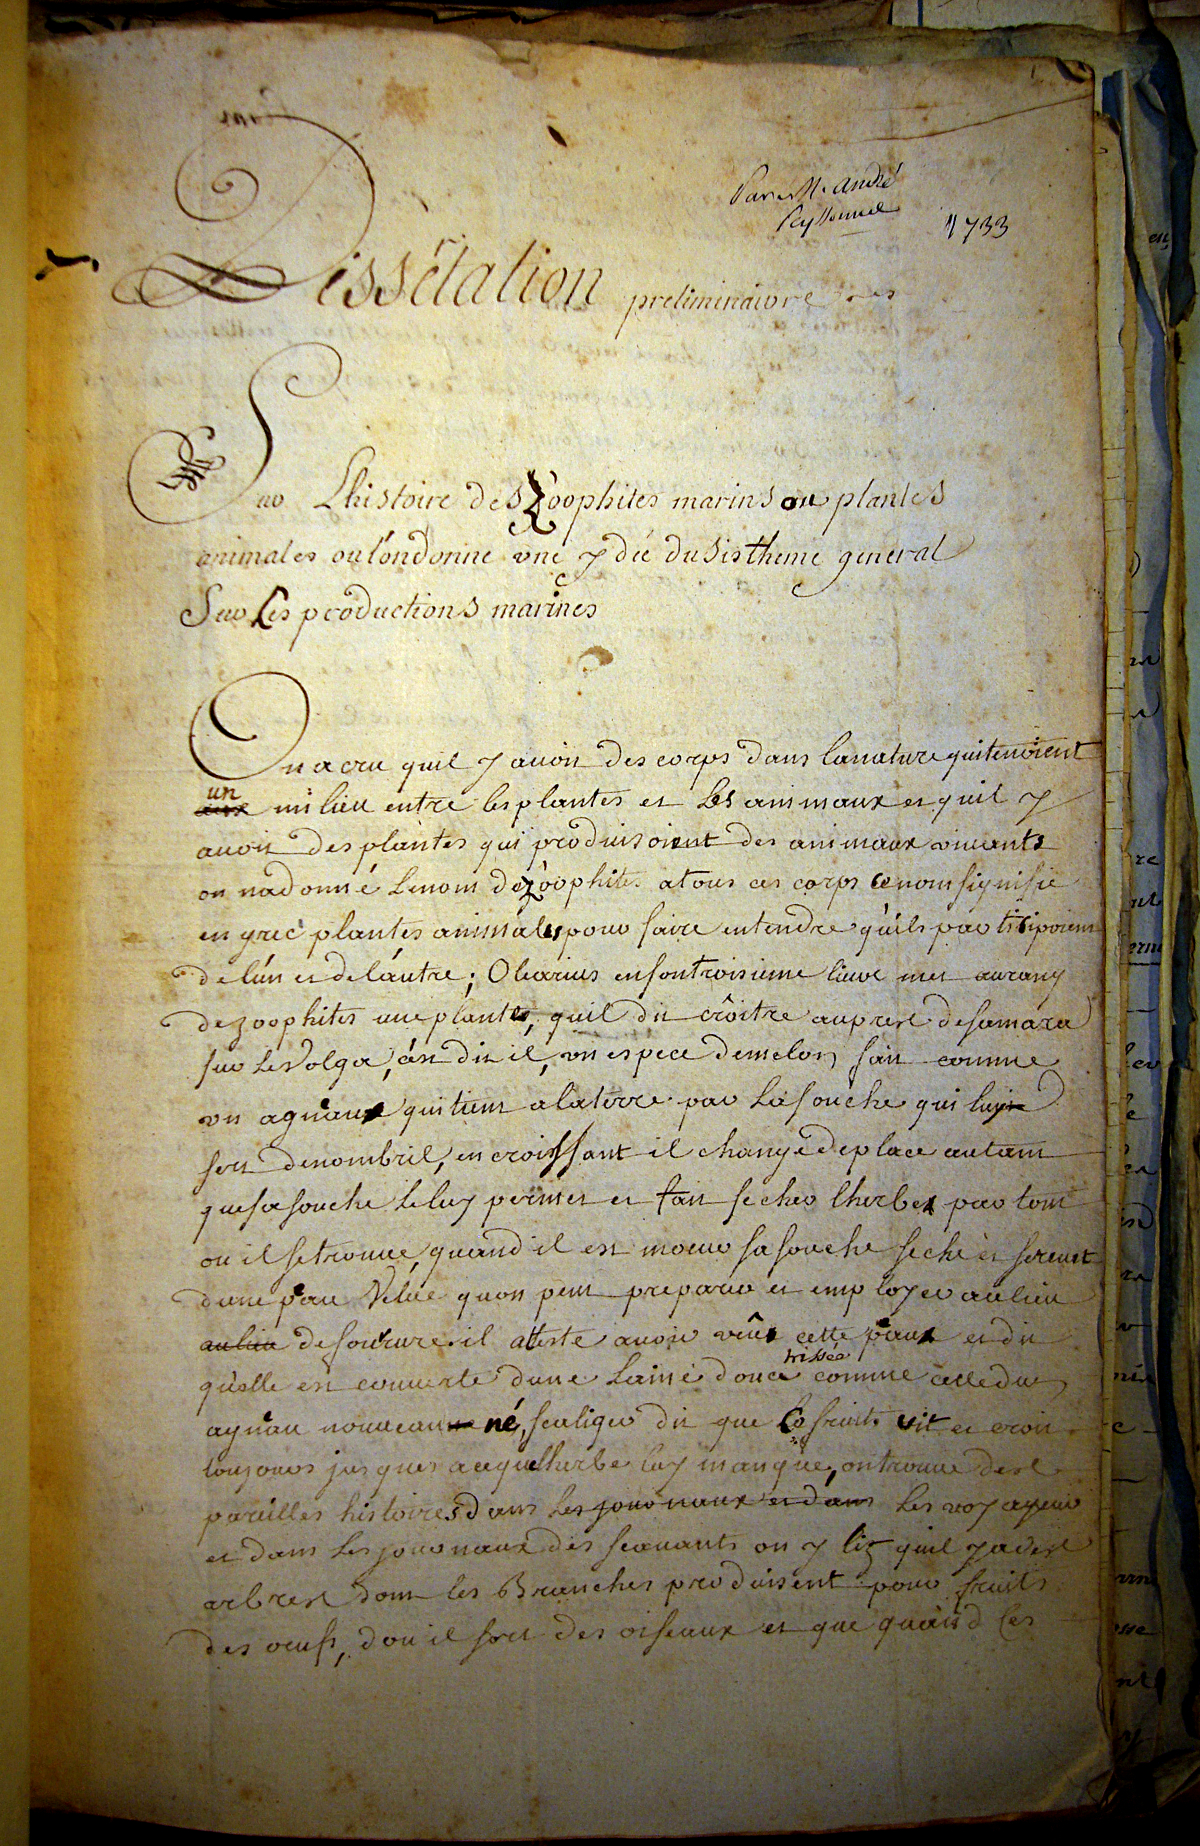 Par Mr. André
Peyssonnel
1733
Dissértation preliminaire
Sur Lhistoire des Zoophites marins ou plantes
animales ou l'on donne une ydée du sistheme general
Sur Les productions marines
On a cru quil y avoit des corps dans la nature qui tenoient
un milieu entre les plantes et Les animaux et quil y
avoit des plantes qui produisoient des animaux vivants
on a donné Le nom de zoophites a tous ces corps ce nom signifie
en grec plantes animales pour faire entendre qu'ils partisipoient
de lún et de láutre; Olearius en son troisieme livre met au rang
de zoophites une plante, quil dit crôitre aupres de samara
sur Le Volga, cest dit il, un espece de melon fait comme
un agneau qui tient a la terre par La souche qui luy
sert de nombril, en croissant il change de place autant
que sa souche Le luy permet et fait secher lherbe par tout
ou il se trouve, quand il est meur sa souche seche et se revet
dune peau Veluë quon peut preparer et employer au lieu
au lieu de fourure. il atteste avoir veüe cette peau et dit
quelle est couverte dune Laine douce frissée comme celle dun
agneau nouveau né, scaliger dit que Ce fruit vit et croit
toujours jusques a ce que lherbe luy manque, on trouve des
pareilles histoires dans Les journaux et dans Les voyageurs
et dans Les journaux des scavants on y liz quil y a des
arbres dont les Branches produisent pour fruits
des oeufs, dou il sort des oiseaux et que quand Ces